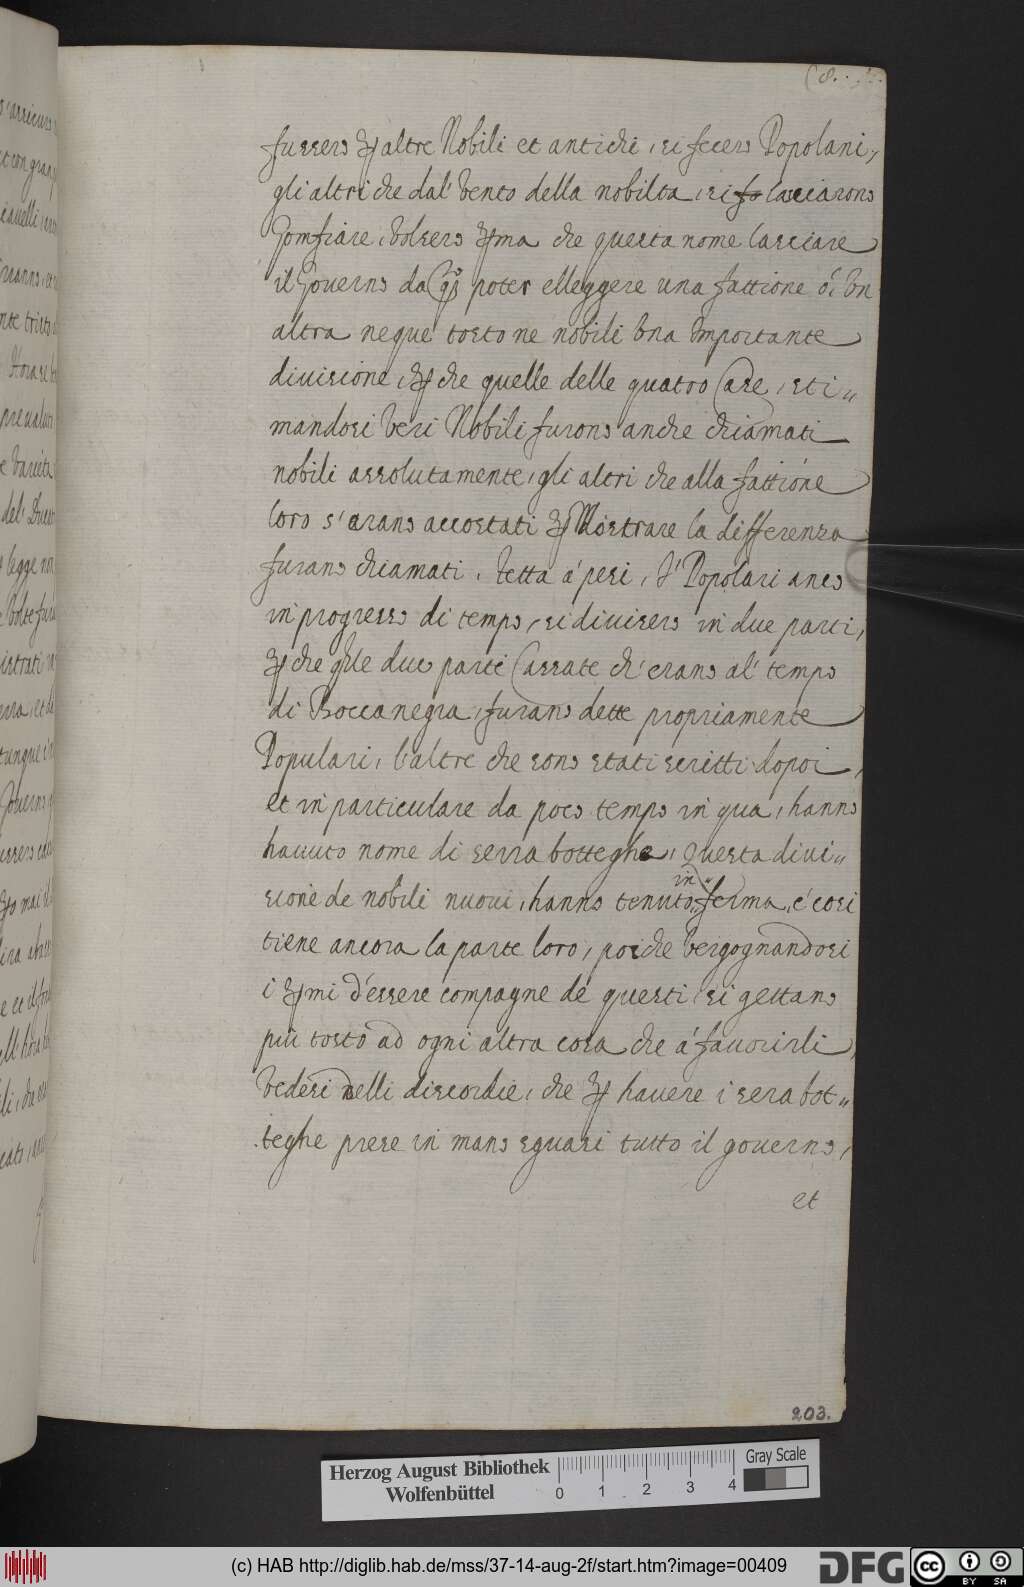 (8.
fussero per altre Nobili et antichi, si fecero Popolani,
gli altri che dal' vento della nobilta, si fo lasciarono
Gomfiare, volsero prma che questa nome lasciare
il Governo da poter elleggere una fattione ó, vn
altra neque' tosto ne nobili vna Importante
diuisione, per che quelle delle quatro Case, sti„
mandosi veri Nobili furono anche chiamati
nobili assolutamente, gli altri che alla fattióne
loro s'arano accostati per Mostrare la differenza
furano chiamati, tetta á peri, i' Popolari anco
in progresso di tempo, si diuisero in due parti,
per che qlle due parti Cassate ch'erano al' tempo
di Boccanegra, furano dette propriamente
Populari, l'altre che sono stati scritti dopoi,
et in particulare da poco tempo in qua, hanno
hauuto nome di serra botteghe, questa diui„
sione de nobili nuoui, hanno tenuto in ferma, e' cosi
tiene ancora la parte loro, perche vergognandosi
i prmi d'essere compagne dé questi, si gettano
più tosto ad ogni altra cosa che á fauorirli,
vedesi nelli discordie, che per hauere i sera bot„
teghe prese in mano sguasi tutto il governo,
et
203.
Herzog August Bibliothek
Wolfenbüttel
0 1 2 3 4
Gray Scale
(c) HAB http://diglib.hab.de/mss/37-14-aug-2f/start.htm?image=00409
DFG
cc BY SA